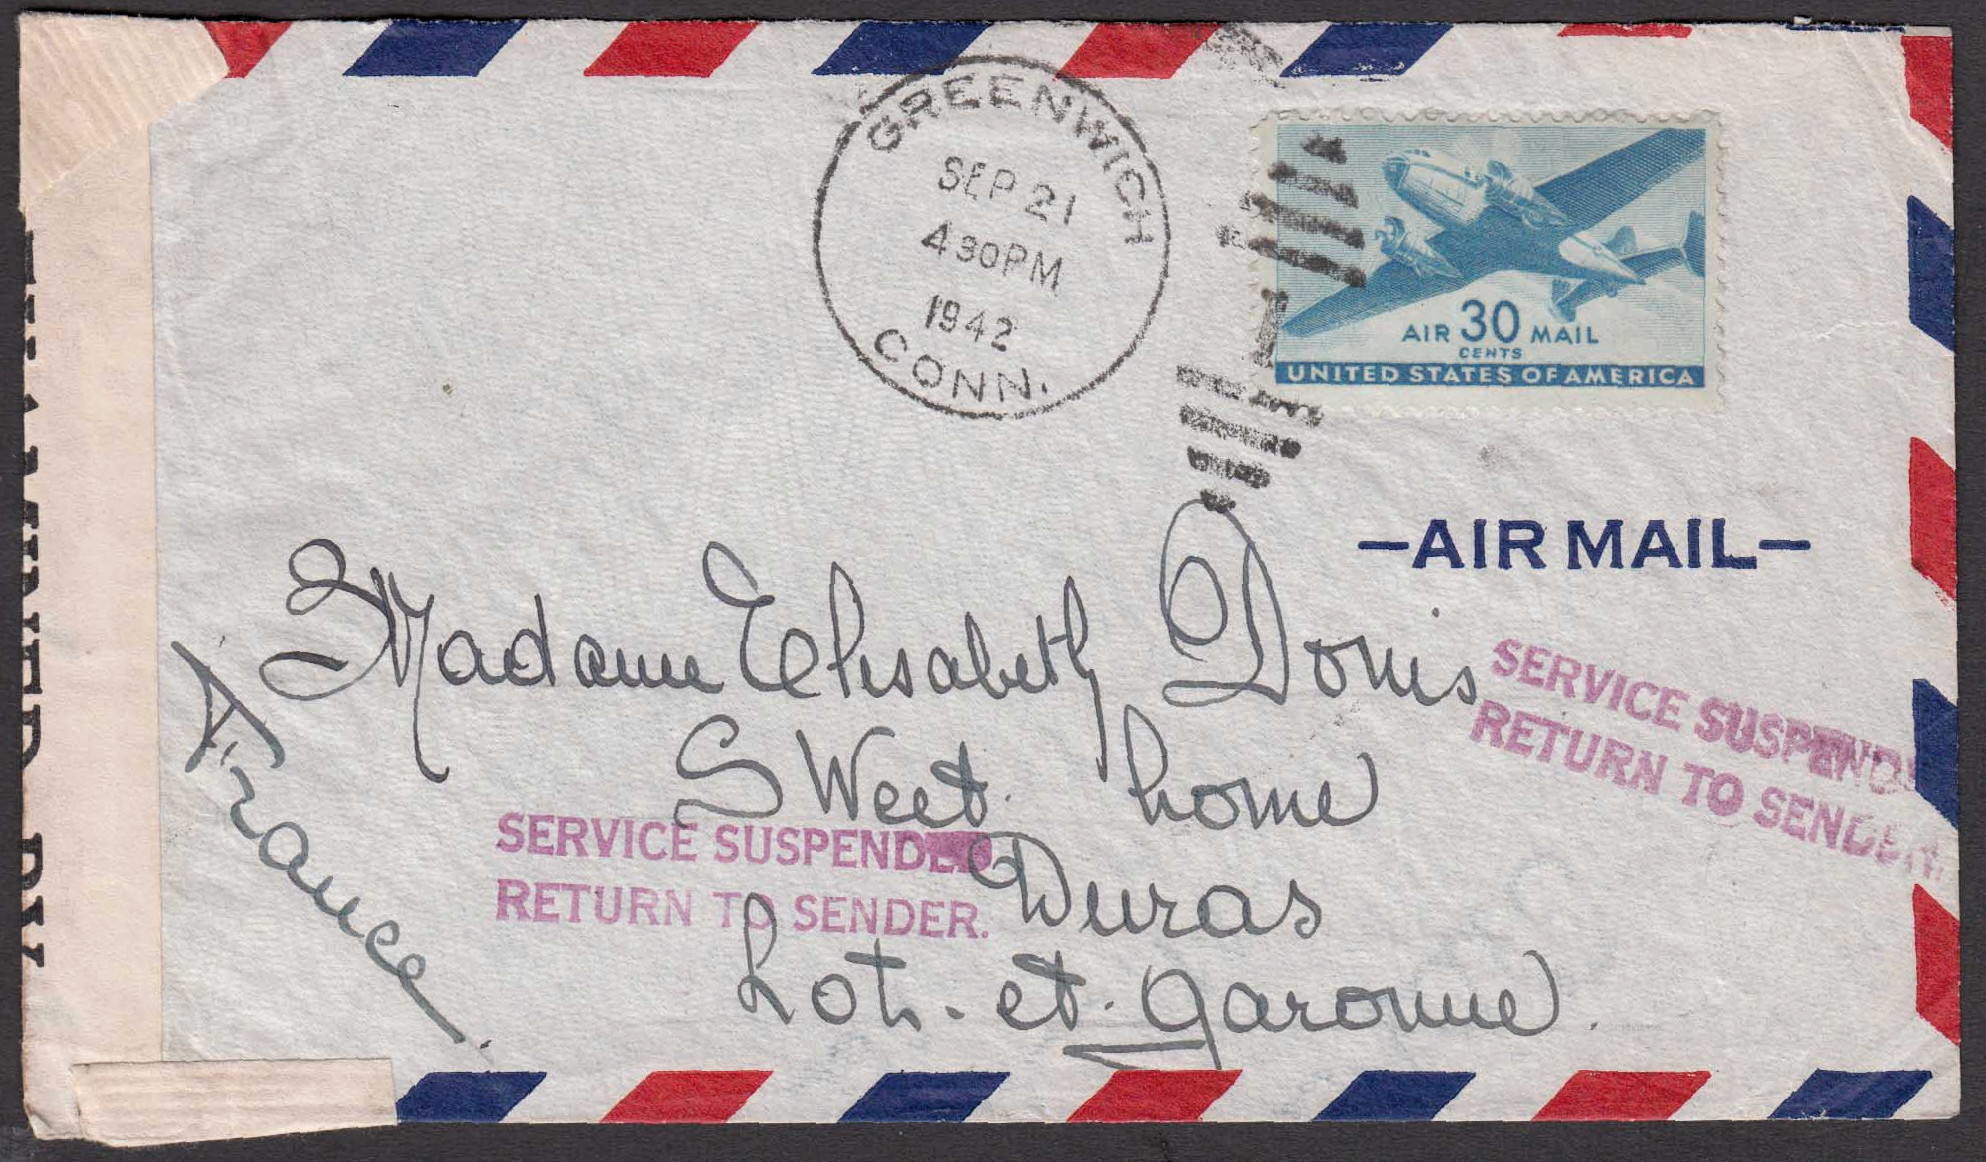 GREENWICH
SEP 21
430PM
1942
CONN.
1
AIR 30 MAIL
CENTS
UNITED STATES OF AMERICA
—AIR MAIL—
EXAMINED BY
Madame Elisabeth Donis
Sweet home
Duras
Lot-et-Garonne.
France.
SERVICE SUSPENDED
RETURN TO SENDER.
SERVICE SUSPENDED
RETURN TO SENDER.